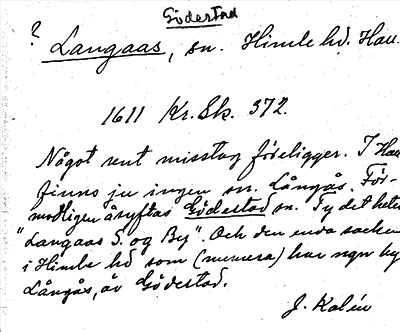 Gödestad
? Langaas, sn. Himle hd. Hall.
1611 Kr.Sk. 372.
Något rent misstag föreligger. I Hall.
finns ju ingen sn. Långås. För-
modligen åsyftas Gödestad sn. Ty det heter
"Langaas S. og By". Och den enda socken
i Himle hd som (numera) har ngn by
Långås, är Gödestad.
J. Kalén